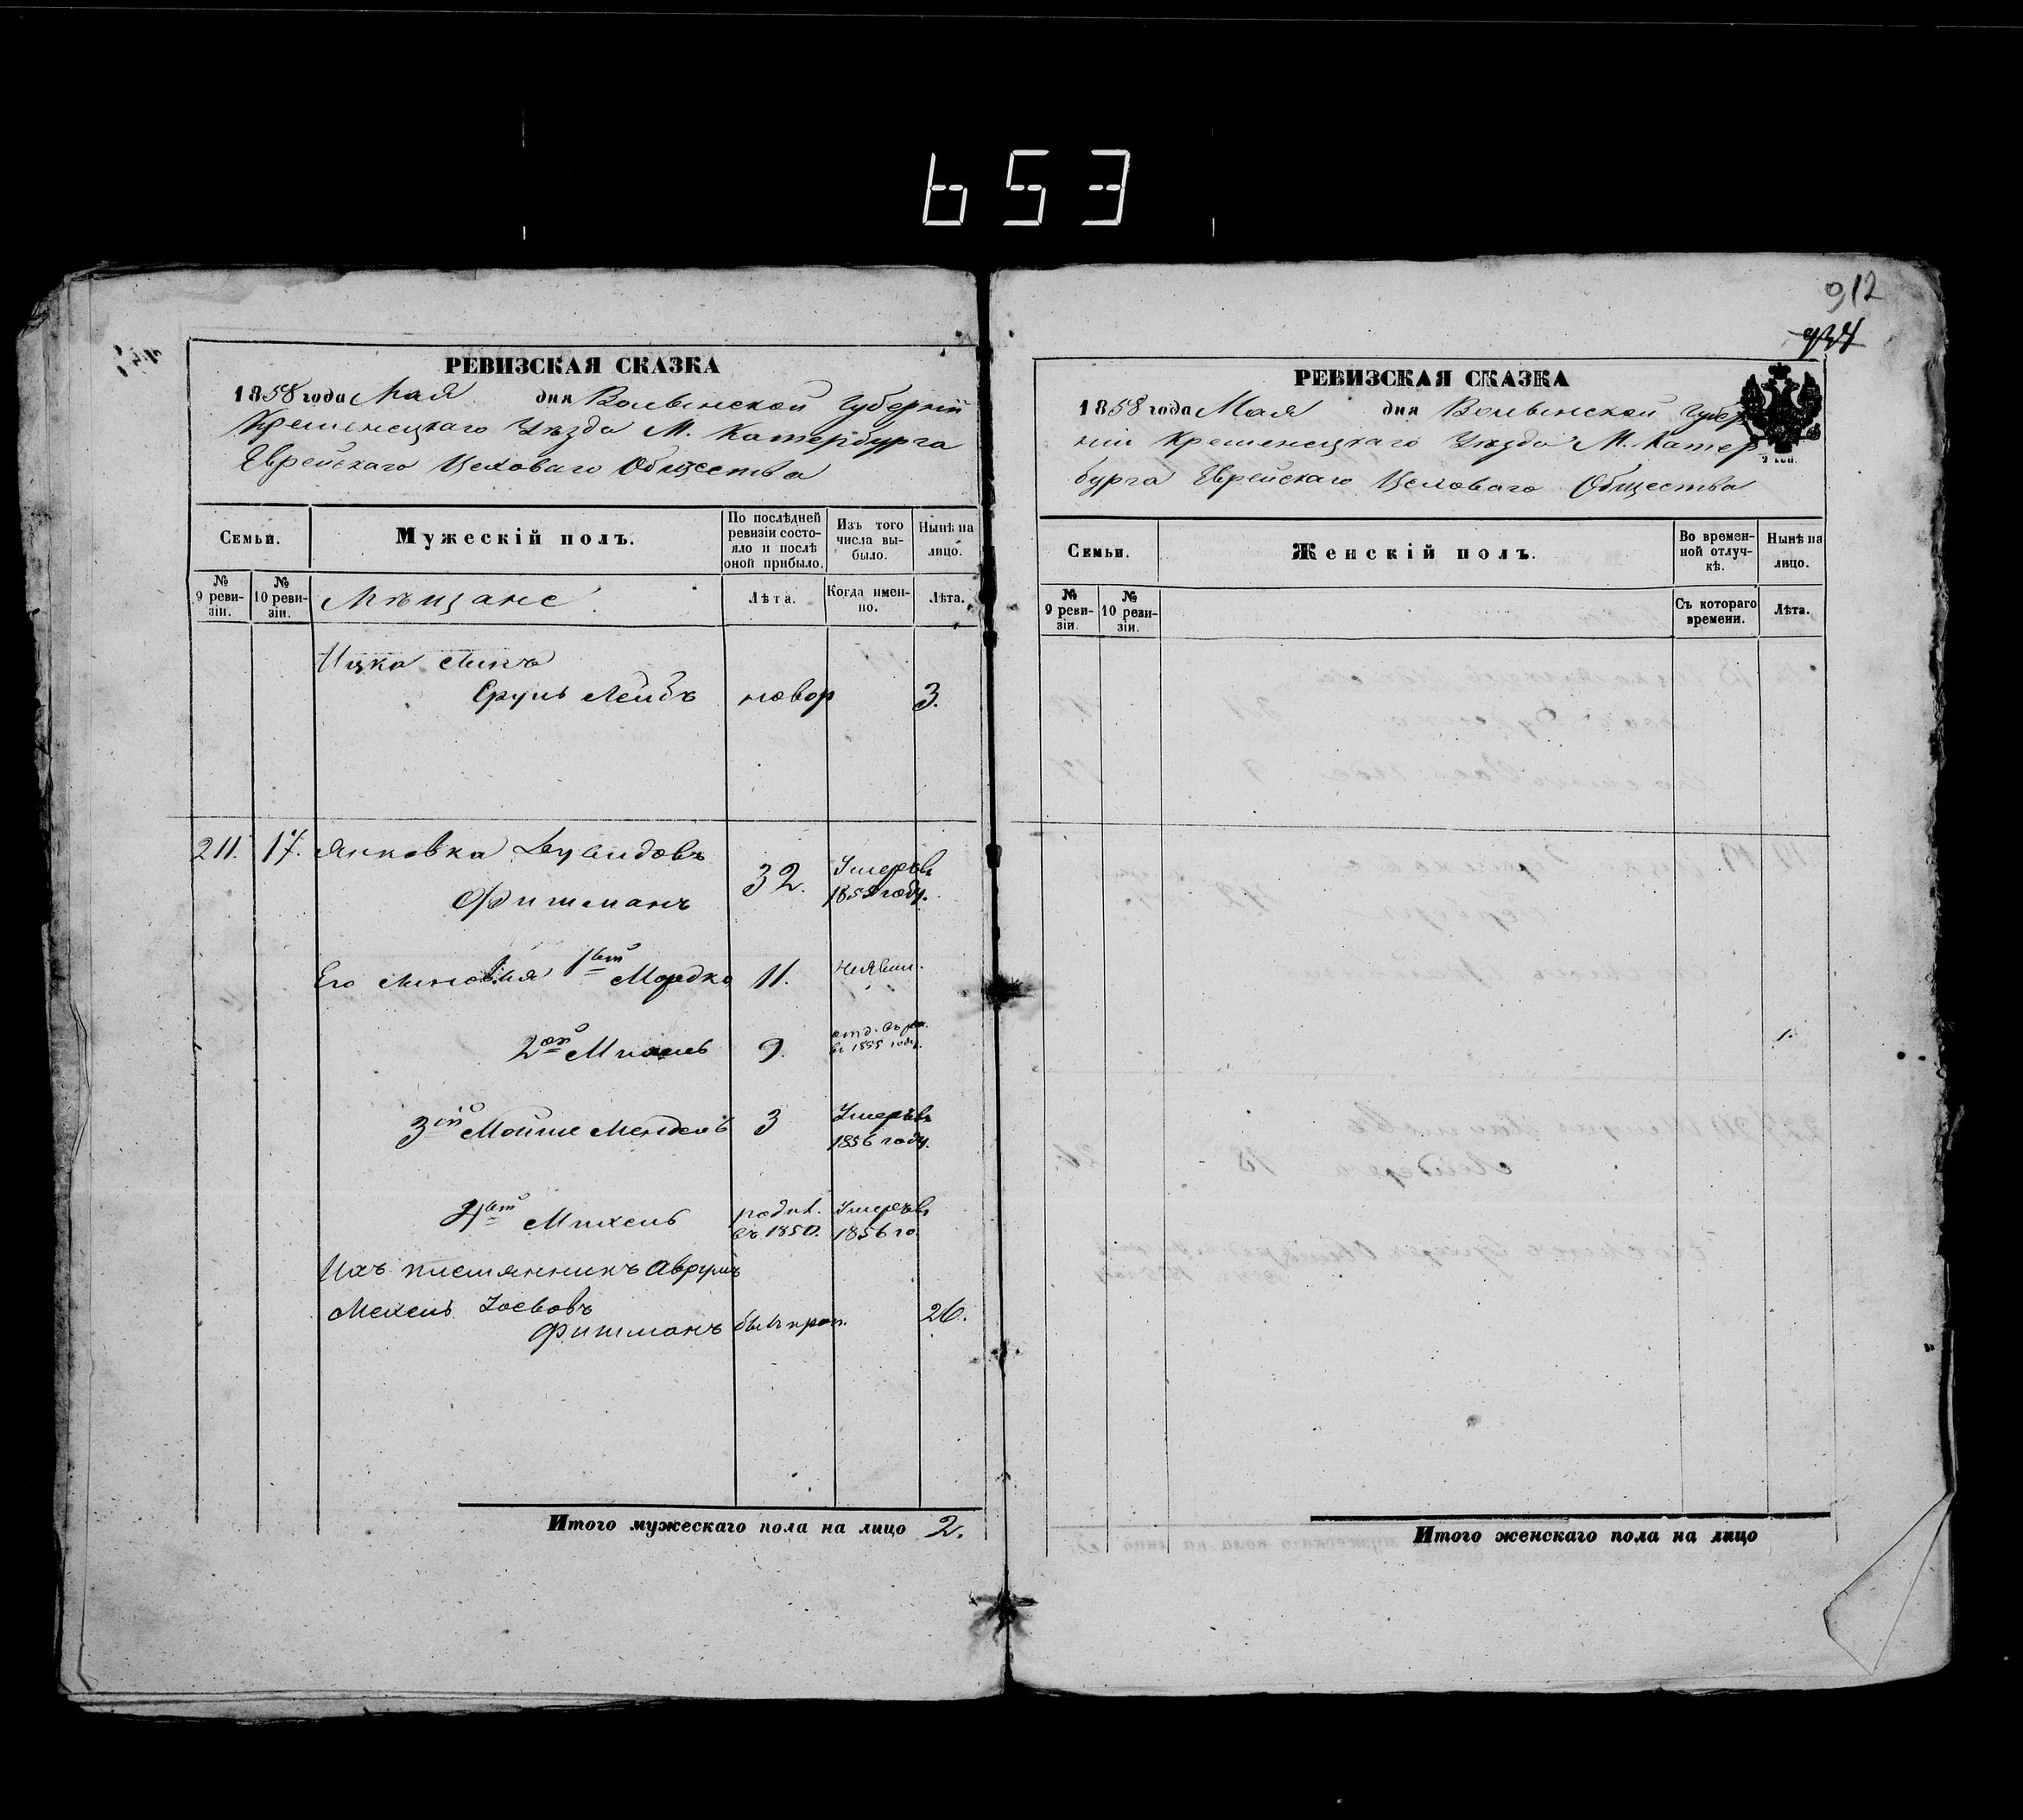 653
912
РЕВИЗСКАЯ СКАЗКА
1858 года Мая дня Волынской Губерніи
Кременецкаго Уѣзда М. Катербурга
Еврейскаго Цеховаго Общества
Семьи.
Мужескій полъ.
По послѣдней ревизіи состояло и послѣ оной прибыло.
Изъ того числа выбыло.
Нынѣ на лицо.
№ 9 ревизіи.
№ 10 ревизіи.
Мѣщане.
Лѣта.
Когда именно.
Лѣта.
Ицка сынъ
Сруль Лейбъ новор 3.
211. 17. Янковка Дувидовъ
Фитманъ 32. Умеръ въ 185 году.
Его сыновья 1ый Мордко 11. неявил.
2ой 9. отд. въ рек. въ 1855 году.
3ій Мошие Мендель 3 Умеръ въ 1856 году.
4ый Михель родил. въ 1850. Умеръ въ 1856 го.
Ихъ племянникъ Аврумъ
Мехель Іосевовъ
Фитманъ былъ проп. 26.
Итого мужескаго пола на лицо 2.
РЕВИЗСКАЯ СКАЗКА
1858 года Мая дня Волынской Губер
ніи Кременецкаго Уѣзда М. Катер
бурга Еврейскаго Цеховаго Общества
Семьи.
Женскій полъ.
Во временной отлучкѣ.
Нынѣ на лицо.
№ 9 ревизіи.
№ 10 ревизіи.
Съ котораго времени.
Лѣта.
Итого женскаго пола на лицо